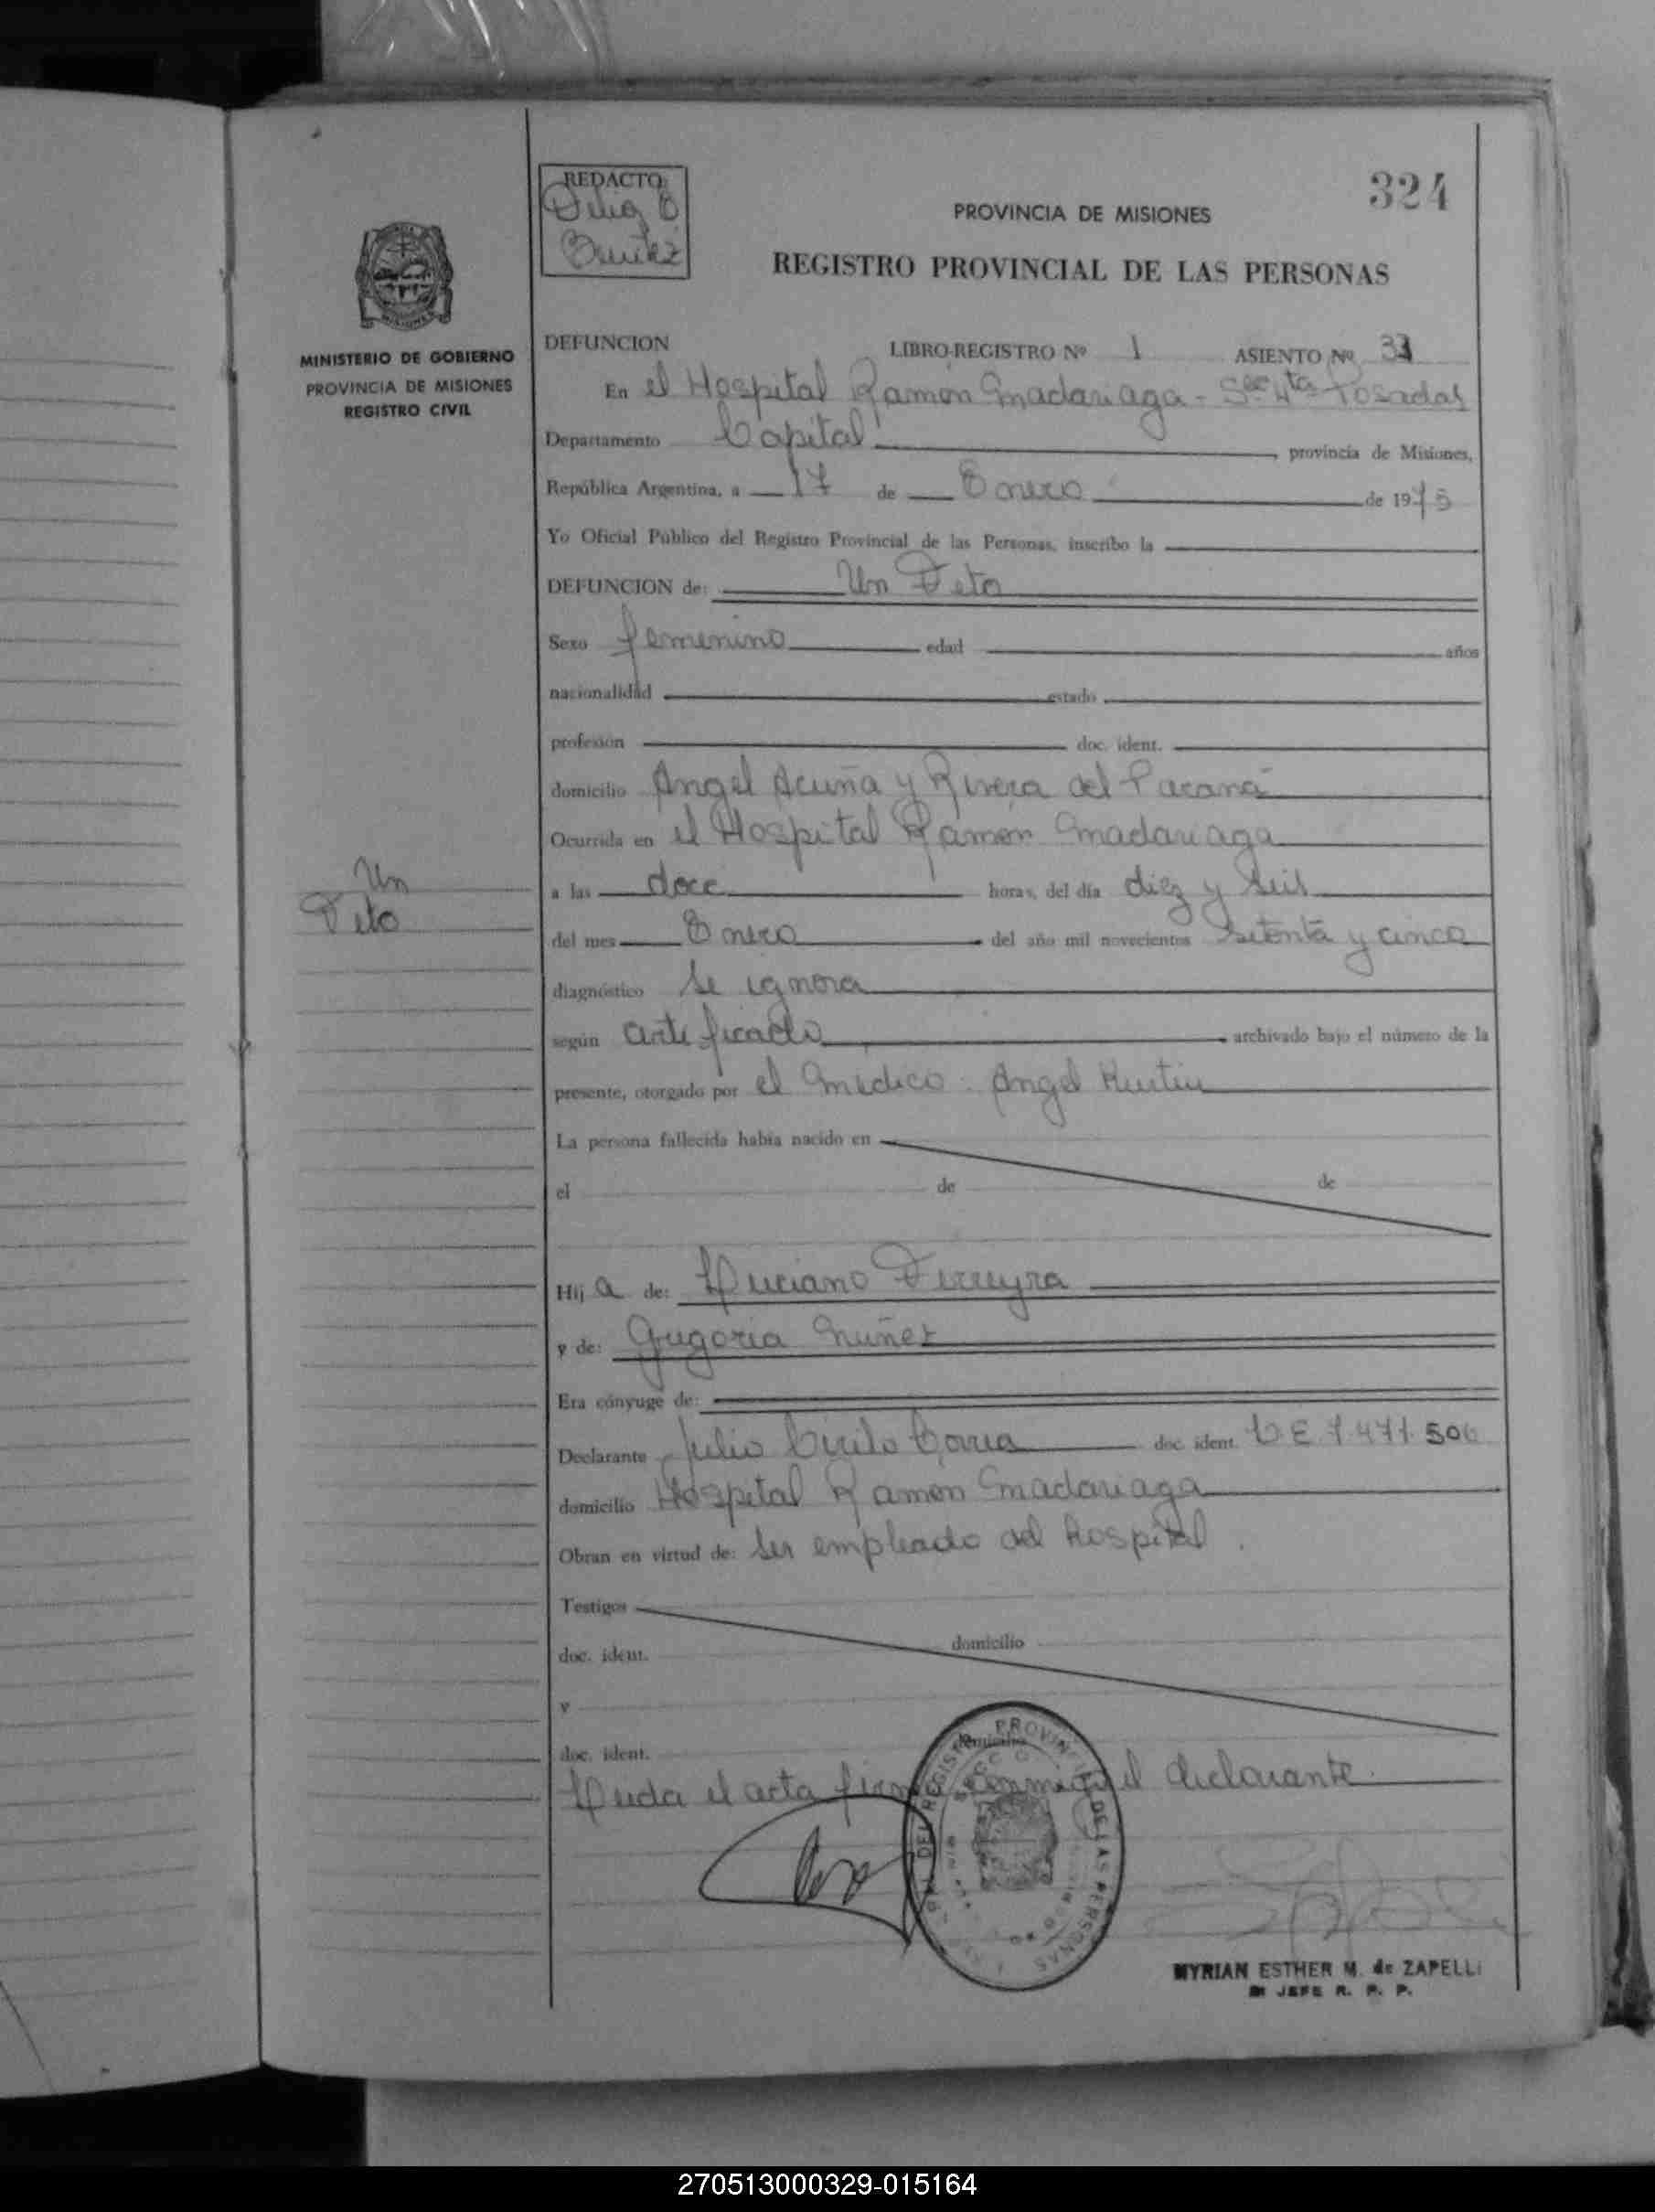 324
REDACTO
Delia B
Benitez
PROVINCIA DE MISIONES
REGISTRO PROVINCIAL DE LAS PERSONAS
MINISTERIO DE GOBIERNO
PROVINCIA DE MISIONES
REGISTRO CIVIL
DEFUNCION LIBRO-REGISTRO Nº 1 ASIENTO Nº
En el Hospital Ramón Madariaga - Secc 4ta Posadas
Departamento Capital, provincia de Misiones,
República Argentina, a 17 de Enero de 1975
Yo Oficial Público del Registro Provincial de las Personas, inscribo la
DEFUNCION de: Un Feto
Sexo femenino edad años
nacionalidad estado
profesión doc. ident.
domicilio Angel Acuña y Rivera del Paraná
Ocurrida en el Hospital Ramón Madariaga
Un
Feto
a las doce horas, del día diez y seis
del mes Enero del año mil novecientos setenta y cinco
diagnóstico se ignora
según certificado archivado bajo el número de la
presente, otorgado por el médico: Angel
La persona fallecida había nacido en
el de de
Hija de: Luciano Ferreyra
y de: Gregoria Nuñez
Era cónyuge de:
Declarante Julio Cirilo doc. ident. L.E. 7.471.506
domicilio Hospital Ramón Madariaga
Obran en virtud de: ser empleado del hospital.
Testigos
doc. ident. domicilio
y
domicilio
doc. ident.
Leida el acta firma conmigo el declarante.
DEL REGISTRO PROVINCIAL DE LAS PERSONAS
MYRIAN ESTHER M. de ZAPELLI
JEFE R. P. P.
270513000329-015164